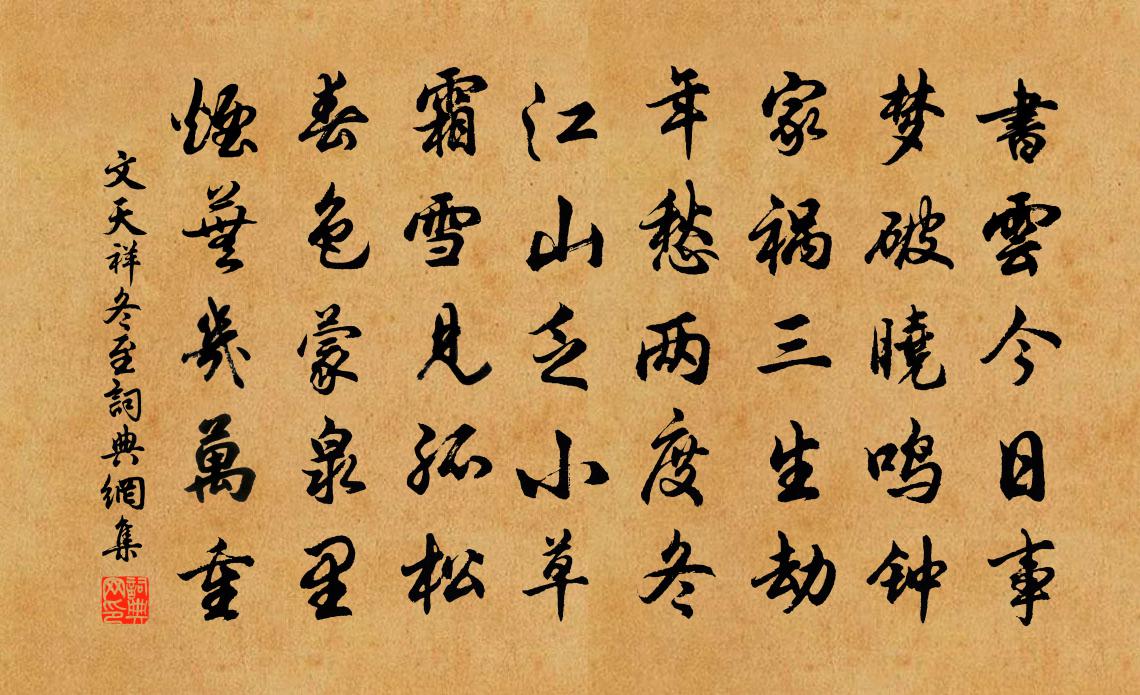 書雲今日事
梦破曉鸣钟
家祸三生劫
年愁两度冬
江山乏小草
霜雪見孤松
春色蒙泉里
煙蕪幾萬重
文天祥冬至詞典網集
詞典网印